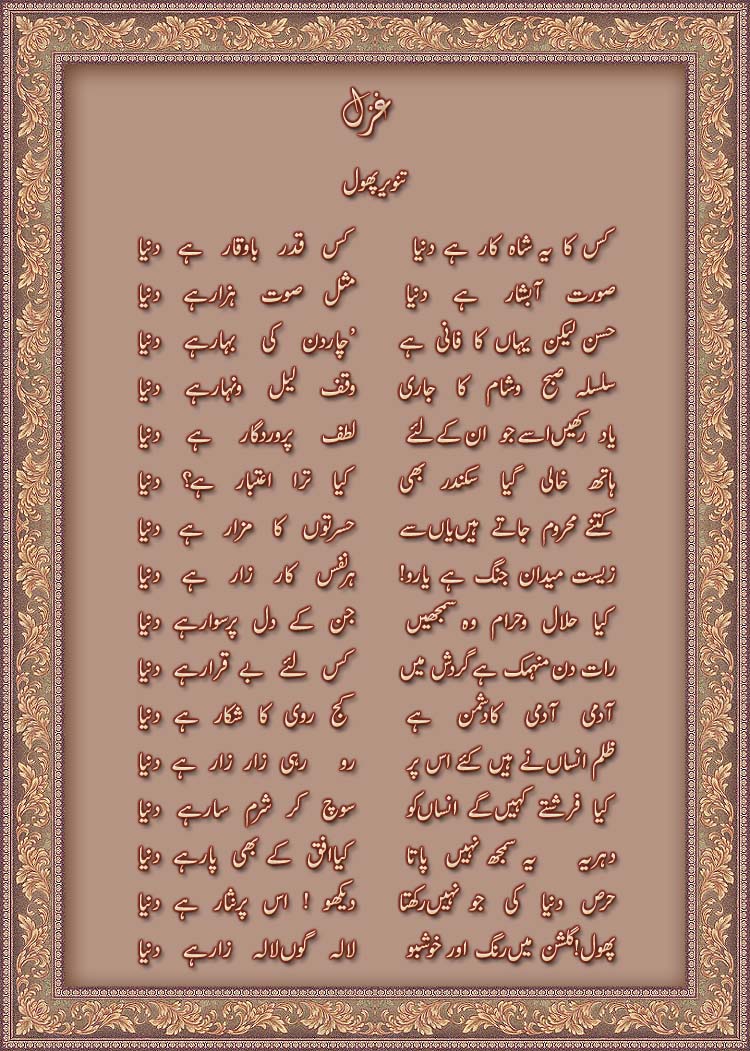 غزل
تنویر پھول
کس کا یہ شاہ کار ہے دنیا کس قدر باوقار ہے دنیا
صورت آبشار ہے دنیا مثل صوت ہزار ہے دنیا
حسن لیکن یہاں کا فانی ہے ’چار دن کی بہار ہے دنیا
سلسلہ صبح و شام کا جاری وقف لیل و نہار ہے دنیا
یاد رکھیں اسے جو ان کے لئے لطف پروردگار ہے دنیا
ہاتھ خالی گیا سکندر بھی کیا ترا اعتبار ہے؟ دنیا
کتنے محروم جاتے ہیں یاں سے حسرتوں کا مزار ہے دنیا
زیست میدان جنگ ہے یارو! ہر نفس کار زار ہے دنیا
کیا حلال و حرام وہ سمجھیں جن کے دل پر سوار ہے دنیا
رات دن منہمک ہے گردش میں کس لئے بے قرار ہے دنیا
آدمی آدمی کا دشمن ہے کج روی کا شکار ہے دنیا
ظلم انساں نے ہیں کئے اس پر رو رہی زار زار ہے دنیا
کیا فرشتے کہیں گے انساں کو سوچ کر شرم سار ہے دنیا
دہریہ یہ سمجھ نہیں پاتا کیا افق کے بھی پار ہے دنیا
حرص دنیا کی جو نہیں رکھتا دیکھو ! اس پر نثار ہے دنیا
پھول! گلشن میں رنگ اور خوشبو لالہ گوں لالہ زار ہے دنیا